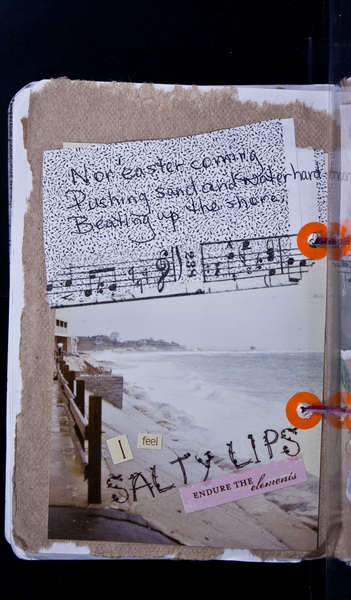 Nor'easter coming
Pushing sand and water hard
Beating up the shore.
I feel
SALTY LIPS
ENDURE THE elements